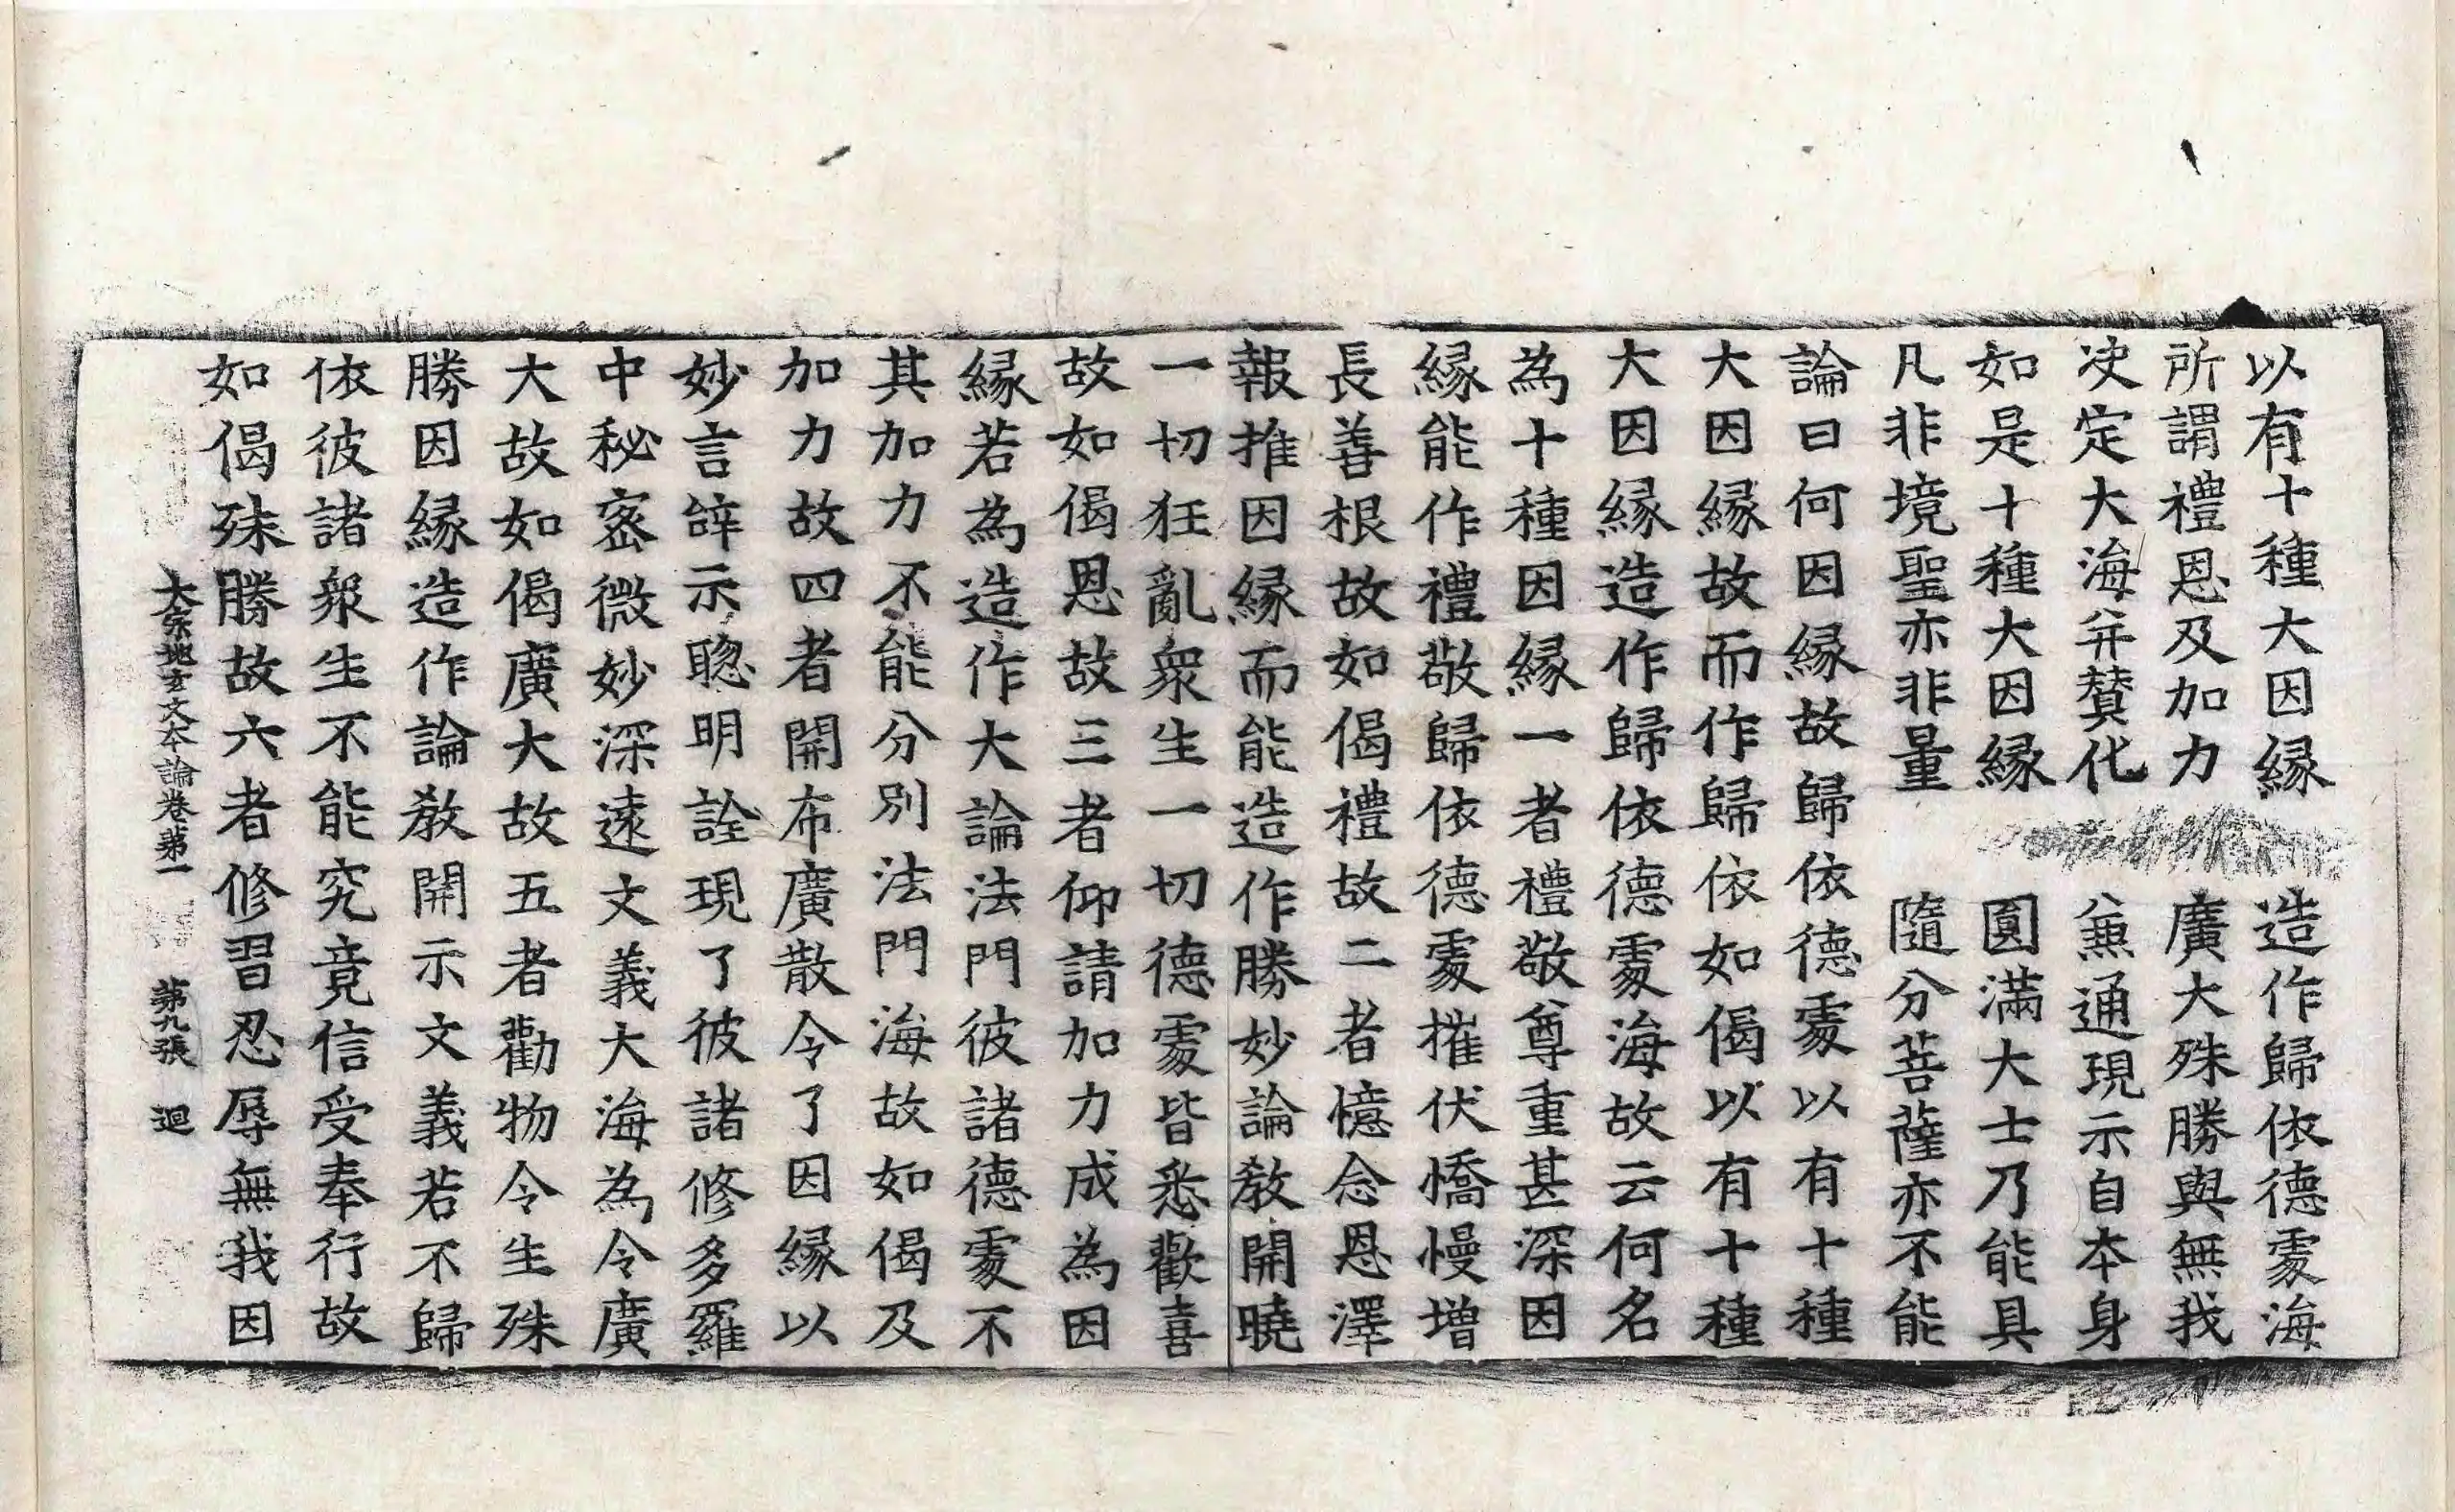 以有十種大因縁　造作歸依德䖏海
所謂禮恩及加力　廣大殊勝與無我
决定大海并賛化　兼通現示自本身
如是十種大因縁　圓滿大士乃能具
凡非境聖亦非量　隨分菩薩亦不能
論曰何因縁故歸依德䖏以有十種
大因縁故而作歸依如偈以有十種
大因縁造作歸依德䖏海故云何名
為十種因縁一者禮敬尊重甚深因
縁能作禮敬歸依德䖏摧伏憍慢增
長善根故如偈禮故二者憶念恩澤
報推因縁而能造作勝妙論教開曉
一切狂亂衆生一切德䖏皆悉歡喜
故如偈恩故三者仰請加力成為因
縁若為造作大論法門彼諸德䖏不
其加力不能分別法門海故如偈及
加力故四者開布廣散令了因縁以
妙言辝示聦明詮現了彼諸修多羅
中秘宻微妙深遠文義大海為令廣
大故如偈廣大故五者勸物令生殊
勝因縁造作論教開示文義若不歸
依彼諸衆生不能究竟信受奉行故
如偈殊勝故六者修習忍辱無我因
大宗地玄文本論卷苐一　苐九張　迴